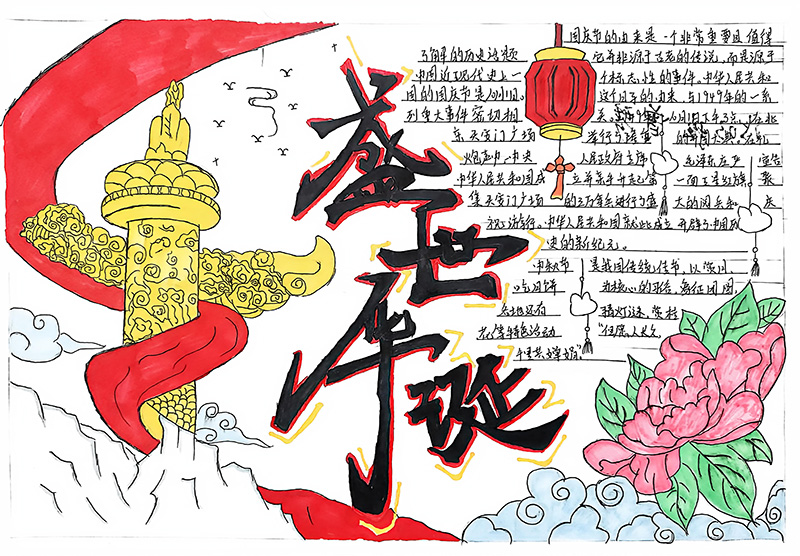 盛世华诞
国庆节的由来是一个非常重要且值得
了解的历史话题 它并非源于古老的传说,而是源于
中国近现代史上一个标志性的事件。中华人民共和
国的国庆节是10月1日。这个日子的由来,与1949年的一系
列重大事件密切相关。1949年10月1日下午3点,在北
京天安门广场 举行了隆重的开国大典。在礼
炮声中,中央 人民政府主席 毛泽东庄严宣告
中华人民共和国成立并亲手升起了第一面五星红旗 聚
集天安门广场的30万军民进行了盛大的阅兵和庆
祝游行。中华人民共和国就此成立 开辟了中国历
史的新纪元。
中秋节 是我国传统佳节,以
吃月饼 为核心的形式,象征团圆,
各地还有 猜灯谜、赏桂
花等特色活动 "但愿人长久
千里共婵娟"